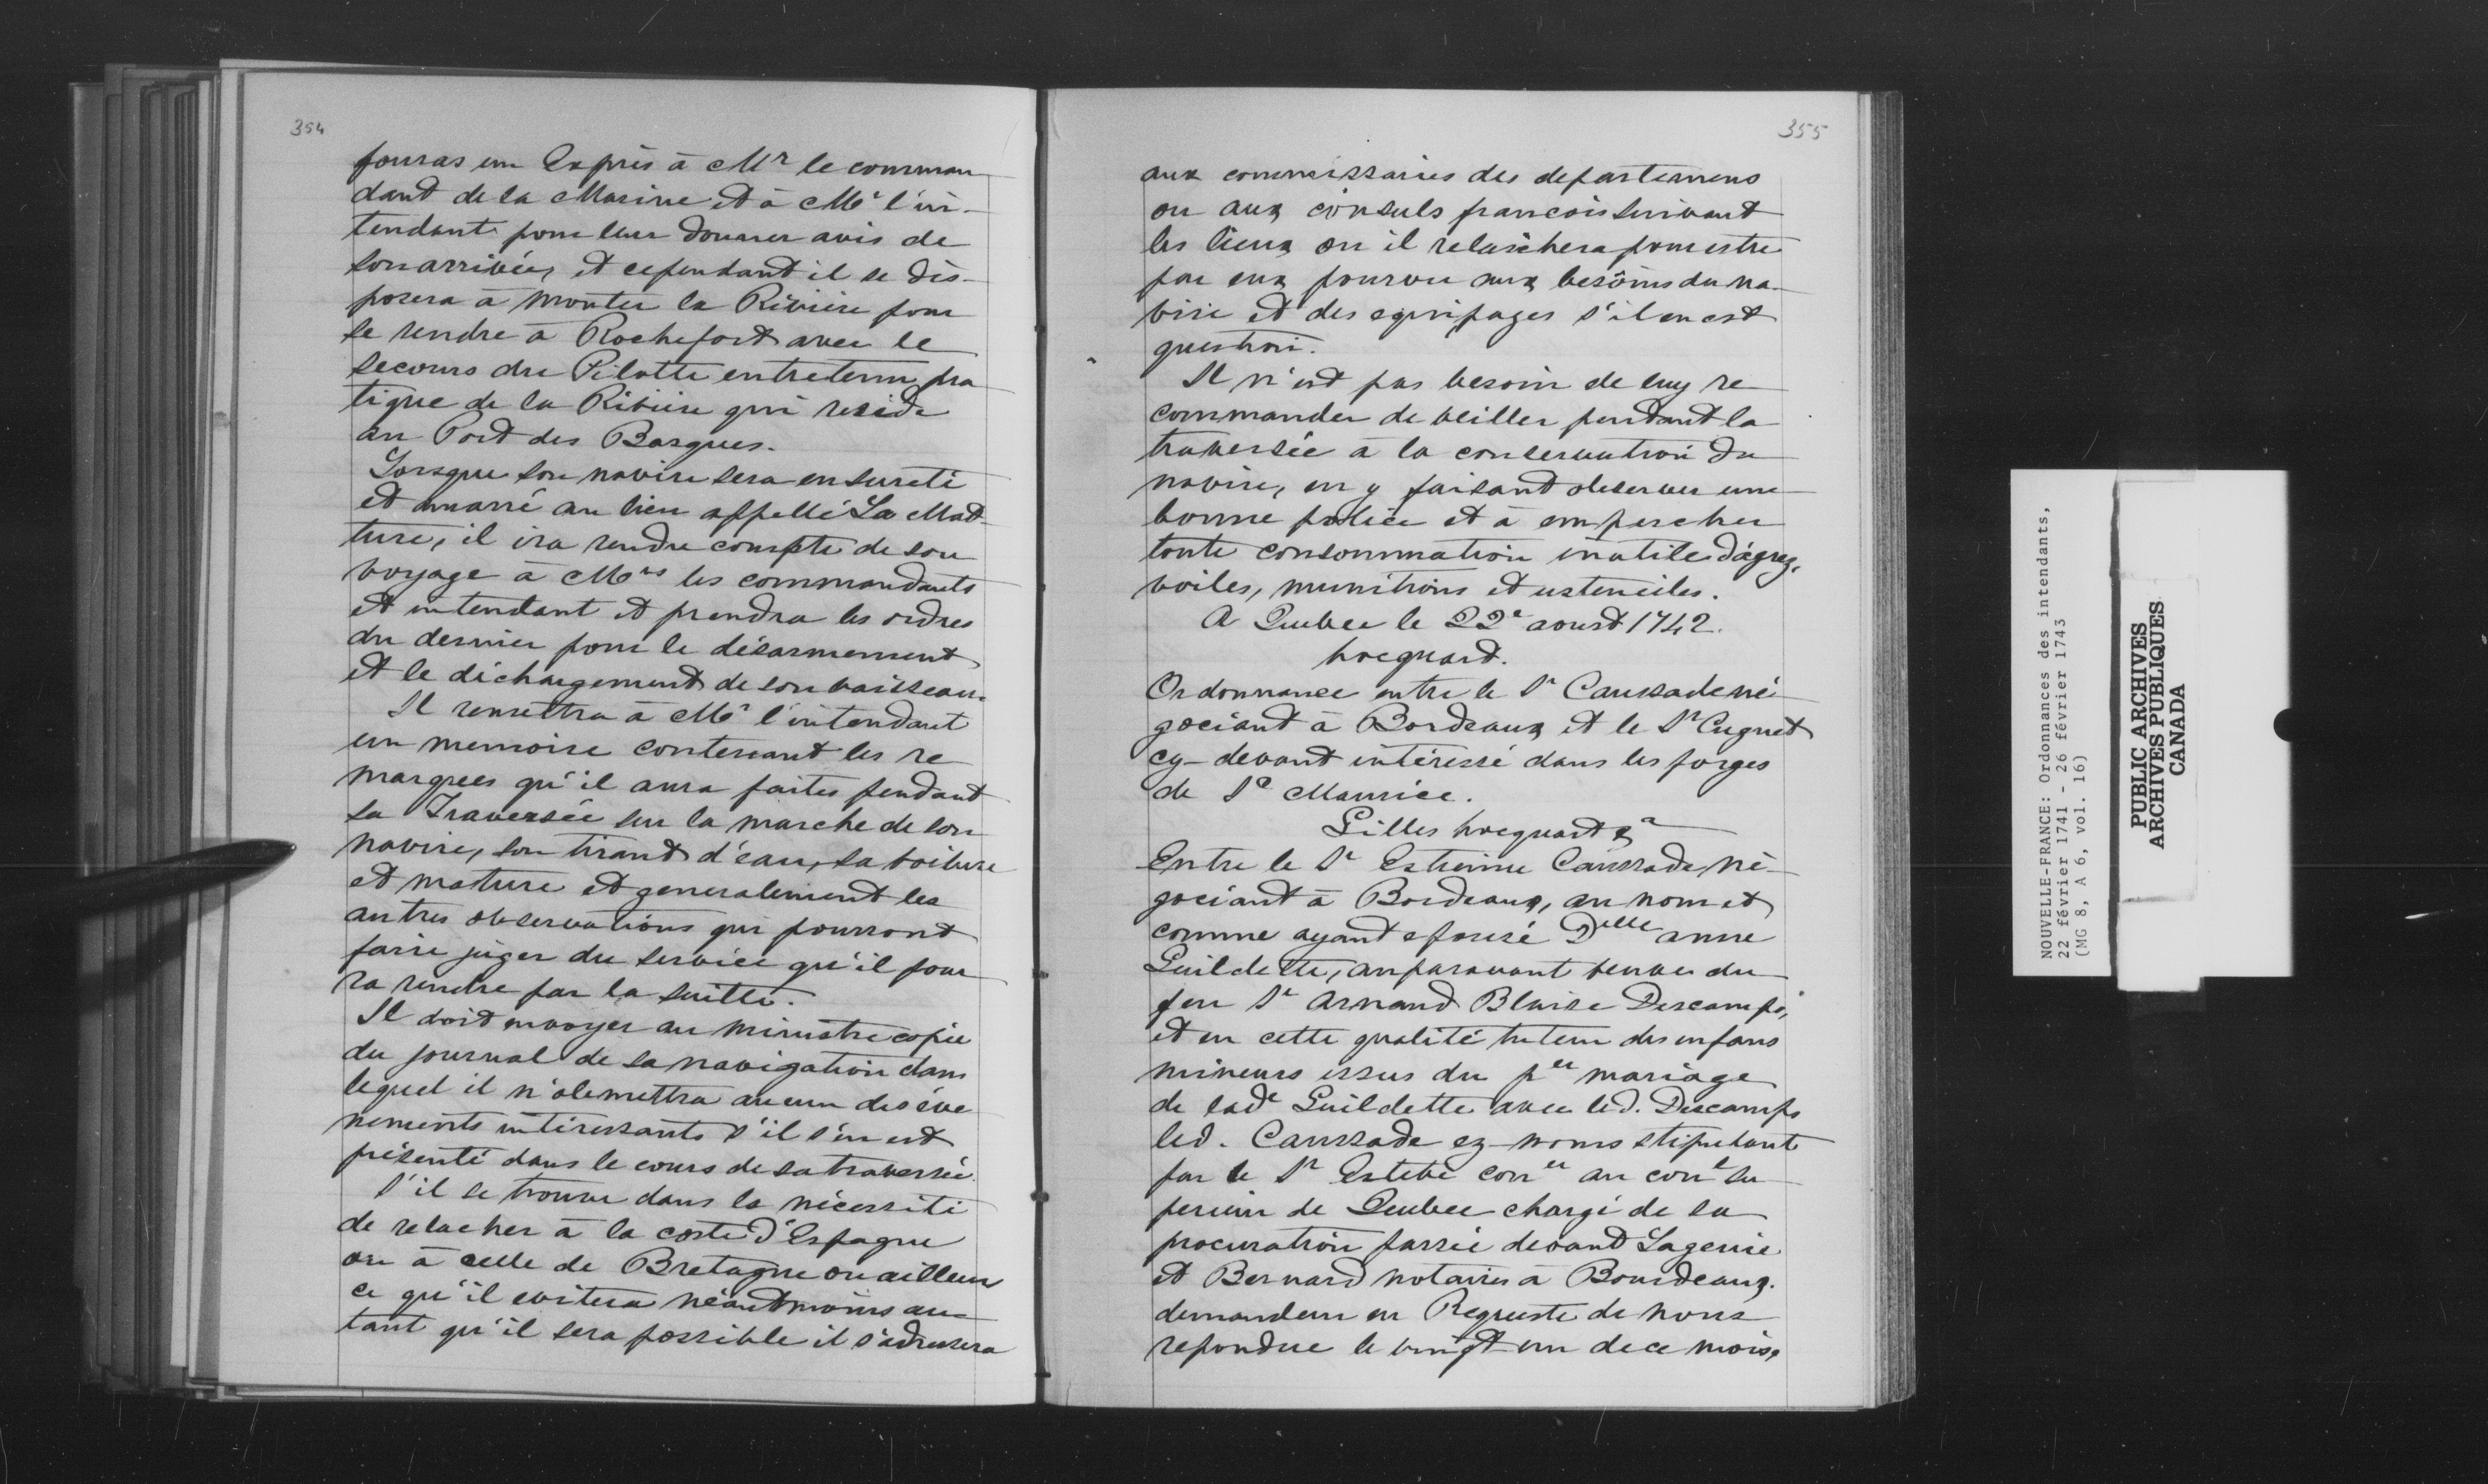 354
fouras un Exprès à Mr le comman
dant de la Marine et à Mr l'in-
tendant pour leur donner avis de
son arrivée, et cependant il se dis-
posera à monter la Rivière pour
se rendre à Rochefort avec le
secours du Pilotte entretenu pra
tique de la Rivière qui reside
au Port des Barques.
Lorsque son navire sera en sureté
et amarré au lieu appellé La Mad
ture, il ira rendre compte de son
voyage à Mrs les commandants
et intendant et prendra les ordres
du dernier pour le désarmement
et le déchargement de son vaisseau.
Il remettra à Mr l'intendant
un memoire contenant les re
marques qu'il aura faites pendant
sa Traversée sur la marche de son
navire, son tirant d'eau, sa voilure
et mature et generalement les
autres observations qui pourront
faire juger du service qu'il pour
ra rendre par la suitte.
Il doit envoyer au ministre copie
du journal de sa navigation dans
lequel il n'obmettra aucun des éve
nements intéressants s'il s'en est
présenté dans le cours de sa traversée.
S'il se trouve dans la nécessité
de relacher à la coste d'Espagne
ou à celle de Bretagne ou ailleurs
ce qu'il evitera néantmoins au-
tant qu'il sera possible il s'adressera
355
aux commissaires des departemens
ou aux consuls francois suivant
les lieux ou il relaschera pour estre
par eux pourvu aux besoins du na-
vire et des equipages s'il en est
question.
Il n'est pas besoin de luy re
commander de veiller pendant la
traversée à la conservation du
navire, en y faisant observer une
bonne police et à empescher
toute consommation inutile d'agrez,
voiles, munitions et ustenciles.
A Quebec le 22e aoust 1742.
hocquart.
Ordonnance entre le Sr Caussade né-
gociant à Bordeaux et le Sr Cugnet
cy-devant intéressé dans les forges
de St Maurice.
Gilles hocquart &a
Entre le Sr Estienne Caussade né-
gociant à Bordeaux, au nom et
comme ayant epousé Delle anne
Guildette, auparavant veuve du
feu Sr Arnand Blaise Descamps,
et en cette qualité tuteur des enfans
mineurs issus du per mariage
de lade Guildette avec led. Descamps
led. Caussade ez-noms stipulant
par le Sr Estebe coner au conl su
perieur de Quebec chargé de la
procuration passée devant Lagenie
et Bernard notaires à Bourdeaux.
demandeur en Requeste de nous
repondue le vingt un de ce mois,
NOUVELLE-FRANCE: Ordonnances des intendants,
22 février 1741 - 26 février 1743
(MG 8, A 6, vol. 16)
PUBLIC ARCHIVES
ARCHIVES PUBLIQUES
CANADA